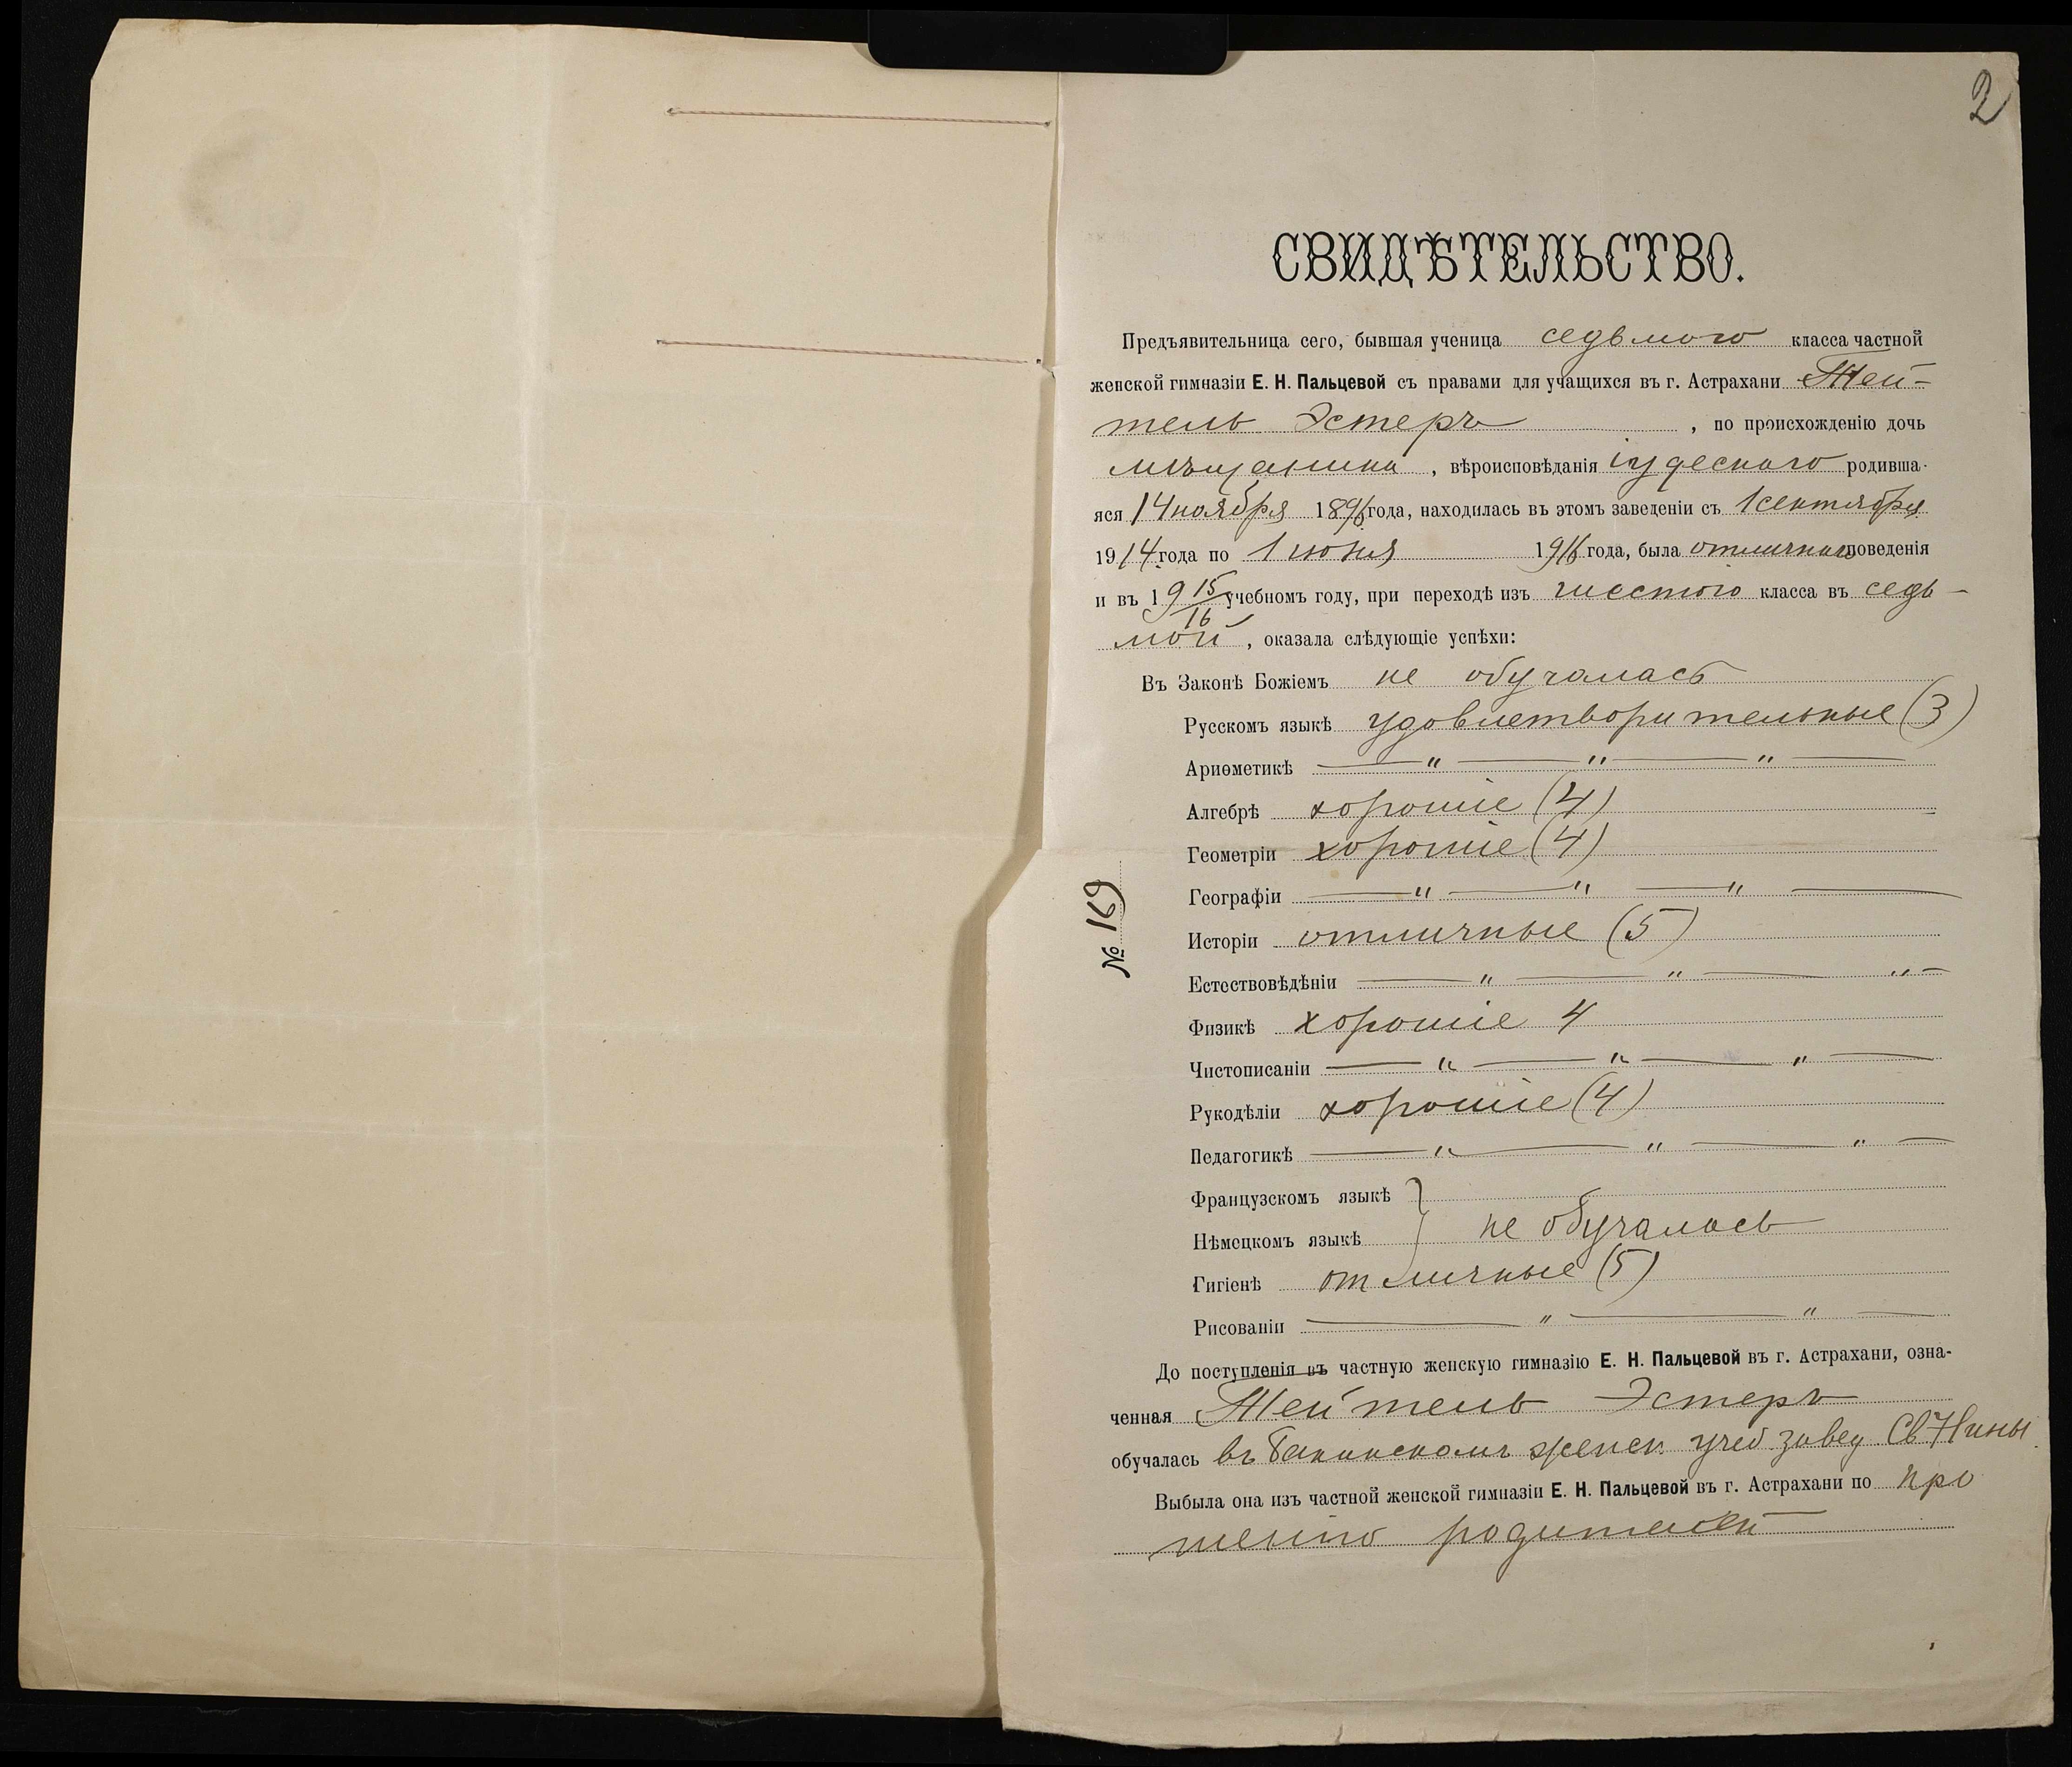 2
СВИДѢТЕЛЬСТВО.
Предъявительница сего, бывшая ученица седьмого класса частной
женской гимназіи Е. Н. Пальцевой съ правами для учащихся въ г. Астрахани Тей-
тель Эстеръ , по происхожденію дочь
мѣщанина , вѣроисповѣданія іудескаго родивша-
яся 14 ноября 1896 года, находилась въ этомъ заведеніи съ 1 сентября
1914 года по 1 іюня 1916 года, была отличнаго поведенія
и въ 1915/16 учебномъ году, при переходѣ изъ шестого класса въ седь-
мой , оказала слѣдующіе успѣхи:
Въ Законѣ Божіемъ не обучалась
Русскомъ языкѣ удовлетворительные (3)
Ариѳметикѣ — " — " — " —
Алгебрѣ хорошіе (4)
Геометріи хорошіе (4)
Географіи — " — " — " —
Исторіи отличные (5)
Естествовѣдѣніи — " — " — " —
Физикѣ хорошіе 4
Чистописаніи — " — " — " —
Рукодѣліи хорошіе (4)
Педагогикѣ — " — " — " —
Французскомъ языкѣ }
Нѣмецкомъ языкѣ } не обучалась
Гигіенѣ отличные (5)
Рисованіи — " — " —
До поступленія въ частную женскую гимназію Е. Н. Пальцевой въ г. Астрахани, озна-
ченная Тейтель Эстеръ
обучалась въ Бакинскомъ женск учеб завед Св Нины.
Выбыла она изъ частной женской гимназіи Е. Н. Пальцевой въ г. Астрахани по про
шенію родителей
№ 169